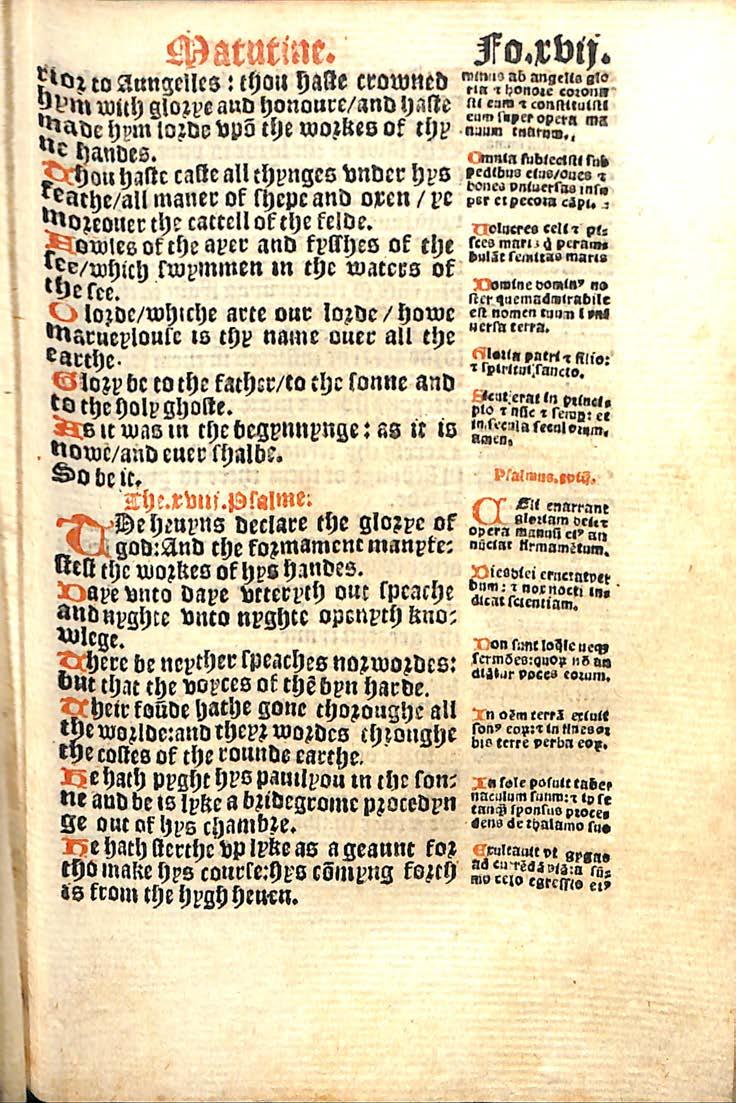 Matutine.
Fo.xvij.
rior to Aungelles : thou haste crowned
hym with glorye and honoure/and haste
made hym lorde vpō the workes of thy
ne handes.
Thou haste caste all thynges vnder hys
feathe/all maner of shepe and oxen / ye
moreouer the cattell of the felde.
Fowles of the ayer and fysshes of the
see/which swymmen in the waters of
the see.
O lorde/whiche arte our lorde / howe
marueylouse is thy name ouer all the
earthe.
Glory be to the father/to the sonne and
to the holy ghoste.
As it was in the begynnynge : as it is
nowe/and euer shalbe.
So be it.
The.xviii.Psalme:
THe heuyns declare the glorye of
god:And the formament manyfe:
stest the workes of hys handes.
Daye vnto daye vtteryth out speache
and nyghte vnto nyghte openyth kno:
wlege.
There be neyther speaches nor wordes:
but that the voyces of thē byn harde.
Their soūde hathe gone thoroughe all
the worlde:and theyr wordes throughe
the costes of the rounde earthe.
He hath pyght hys pauilyou in the son:
ne and be is lyke a bridegrome procedyn
ge out of hys chambre.
He hath sterthe vp lyke as a geaunt for
tho make hys course:hys cōmyng forth
is from the hygh heuen.
minus ab angelis glo
ria ⁊ honore corona
sti eum ⁊ constituisti
eum super opera ma
nuum tuarum.
Omnia subiecisti sub
pedibus eius/oues ⁊
boues vniuersas insu
per et pecora cāpi.
Uolucres celi ⁊ pi:
sces maris q̄ peram:
bulāt semitas maris
Domine dominꝰ no
ster quem admirabile
est nomen tuum ī vni
uersa terra.
Gloria patri ⁊ filio:
⁊ spiritui sancto.
Sicut erat in princi:
pio ⁊ nūc ⁊ semp: et
in secula seculorum.
amen.
Psalmus.xviij.
CEli enarrant
gloriam dei:⁊
opera manuū eiꝰ an
nūciat firmamētum.
Dies diei eructat ver
bum: ⁊ nox nocti in:
dicat scientiam.
Non sunt loq̄le neqꝫ
sermōes:quoꝝ nō au
diātur voces eorum.
In oēm terrā exiuit
sonꝰ eoꝝ:⁊ in fines or
bis terre verba eoꝝ.
In sole posuit taber
naculum suum:⁊ ip se
tanqꝫ sponsus proce:
dens de thalamo suo
Exultauit vt gygas
ad currēdā viā:a sū:
mo celo egressio eiꝰ